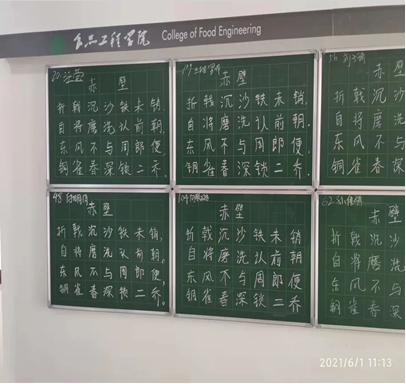 食品工程学院 College of Food Engineering
赤壁
折戟沉沙铁未销,
自将磨洗认前朝。
东风不与周郎便,
铜雀春深锁二乔。
赤壁
折戟沉沙铁未销,
自将磨洗认前朝。
东风不与周郎便,
铜雀春深锁二乔。
赤壁
折戟沉沙
自将磨洗
东风不与
铜雀春深
赤壁
折戟沉沙铁未销,
自将磨洗认前朝。
东风不与周郎便,
铜雀春深锁二乔。
赤壁
折戟沉沙铁未销
自将磨洗认前朝
东风不与周郎便
铜雀春深锁二乔
赤壁
折戟沉沙
自将磨洗
东风不与
铜雀春深
2021/6/1 11:13